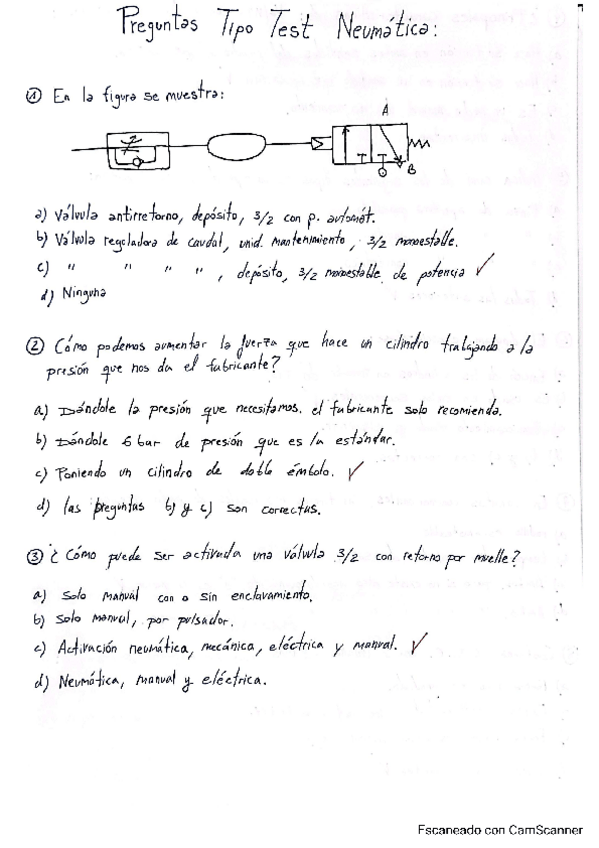 Preguntas Tipo Test Neumática:
① En la figura se muestra:
A
B
a) Válvula antirretorno, depósito, 3/2 con p. automát.
b) Válvula reguladora de caudal, unid. mantenimiento, 3/2 monoestable.
c) " " " ", depósito, 3/2 monoestable de potencia ✓
d) Ninguna
② Cómo podemos aumentar la fuerza que hace un cilindro trabajando a la
presión que nos da el fabricante?
a) Dándole la presión que necesitamos. el fabricante solo recomienda.
b) Dándole 6 bar de presión que es la estándar.
c) Poniendo un cilindro de doble émbolo. ✓
d) las preguntas b) y c) son correctas.
③ ¿Cómo puede ser activada una válvula 3/2 con retorno por muelle?
a) Solo manual con o sin enclavamiento.
b) Solo manual, por pulsador.
c) Activación neumática, mecánica, eléctrica y manual. ✓
d) Neumática, manual y eléctrica.
Escaneado con CamScanner